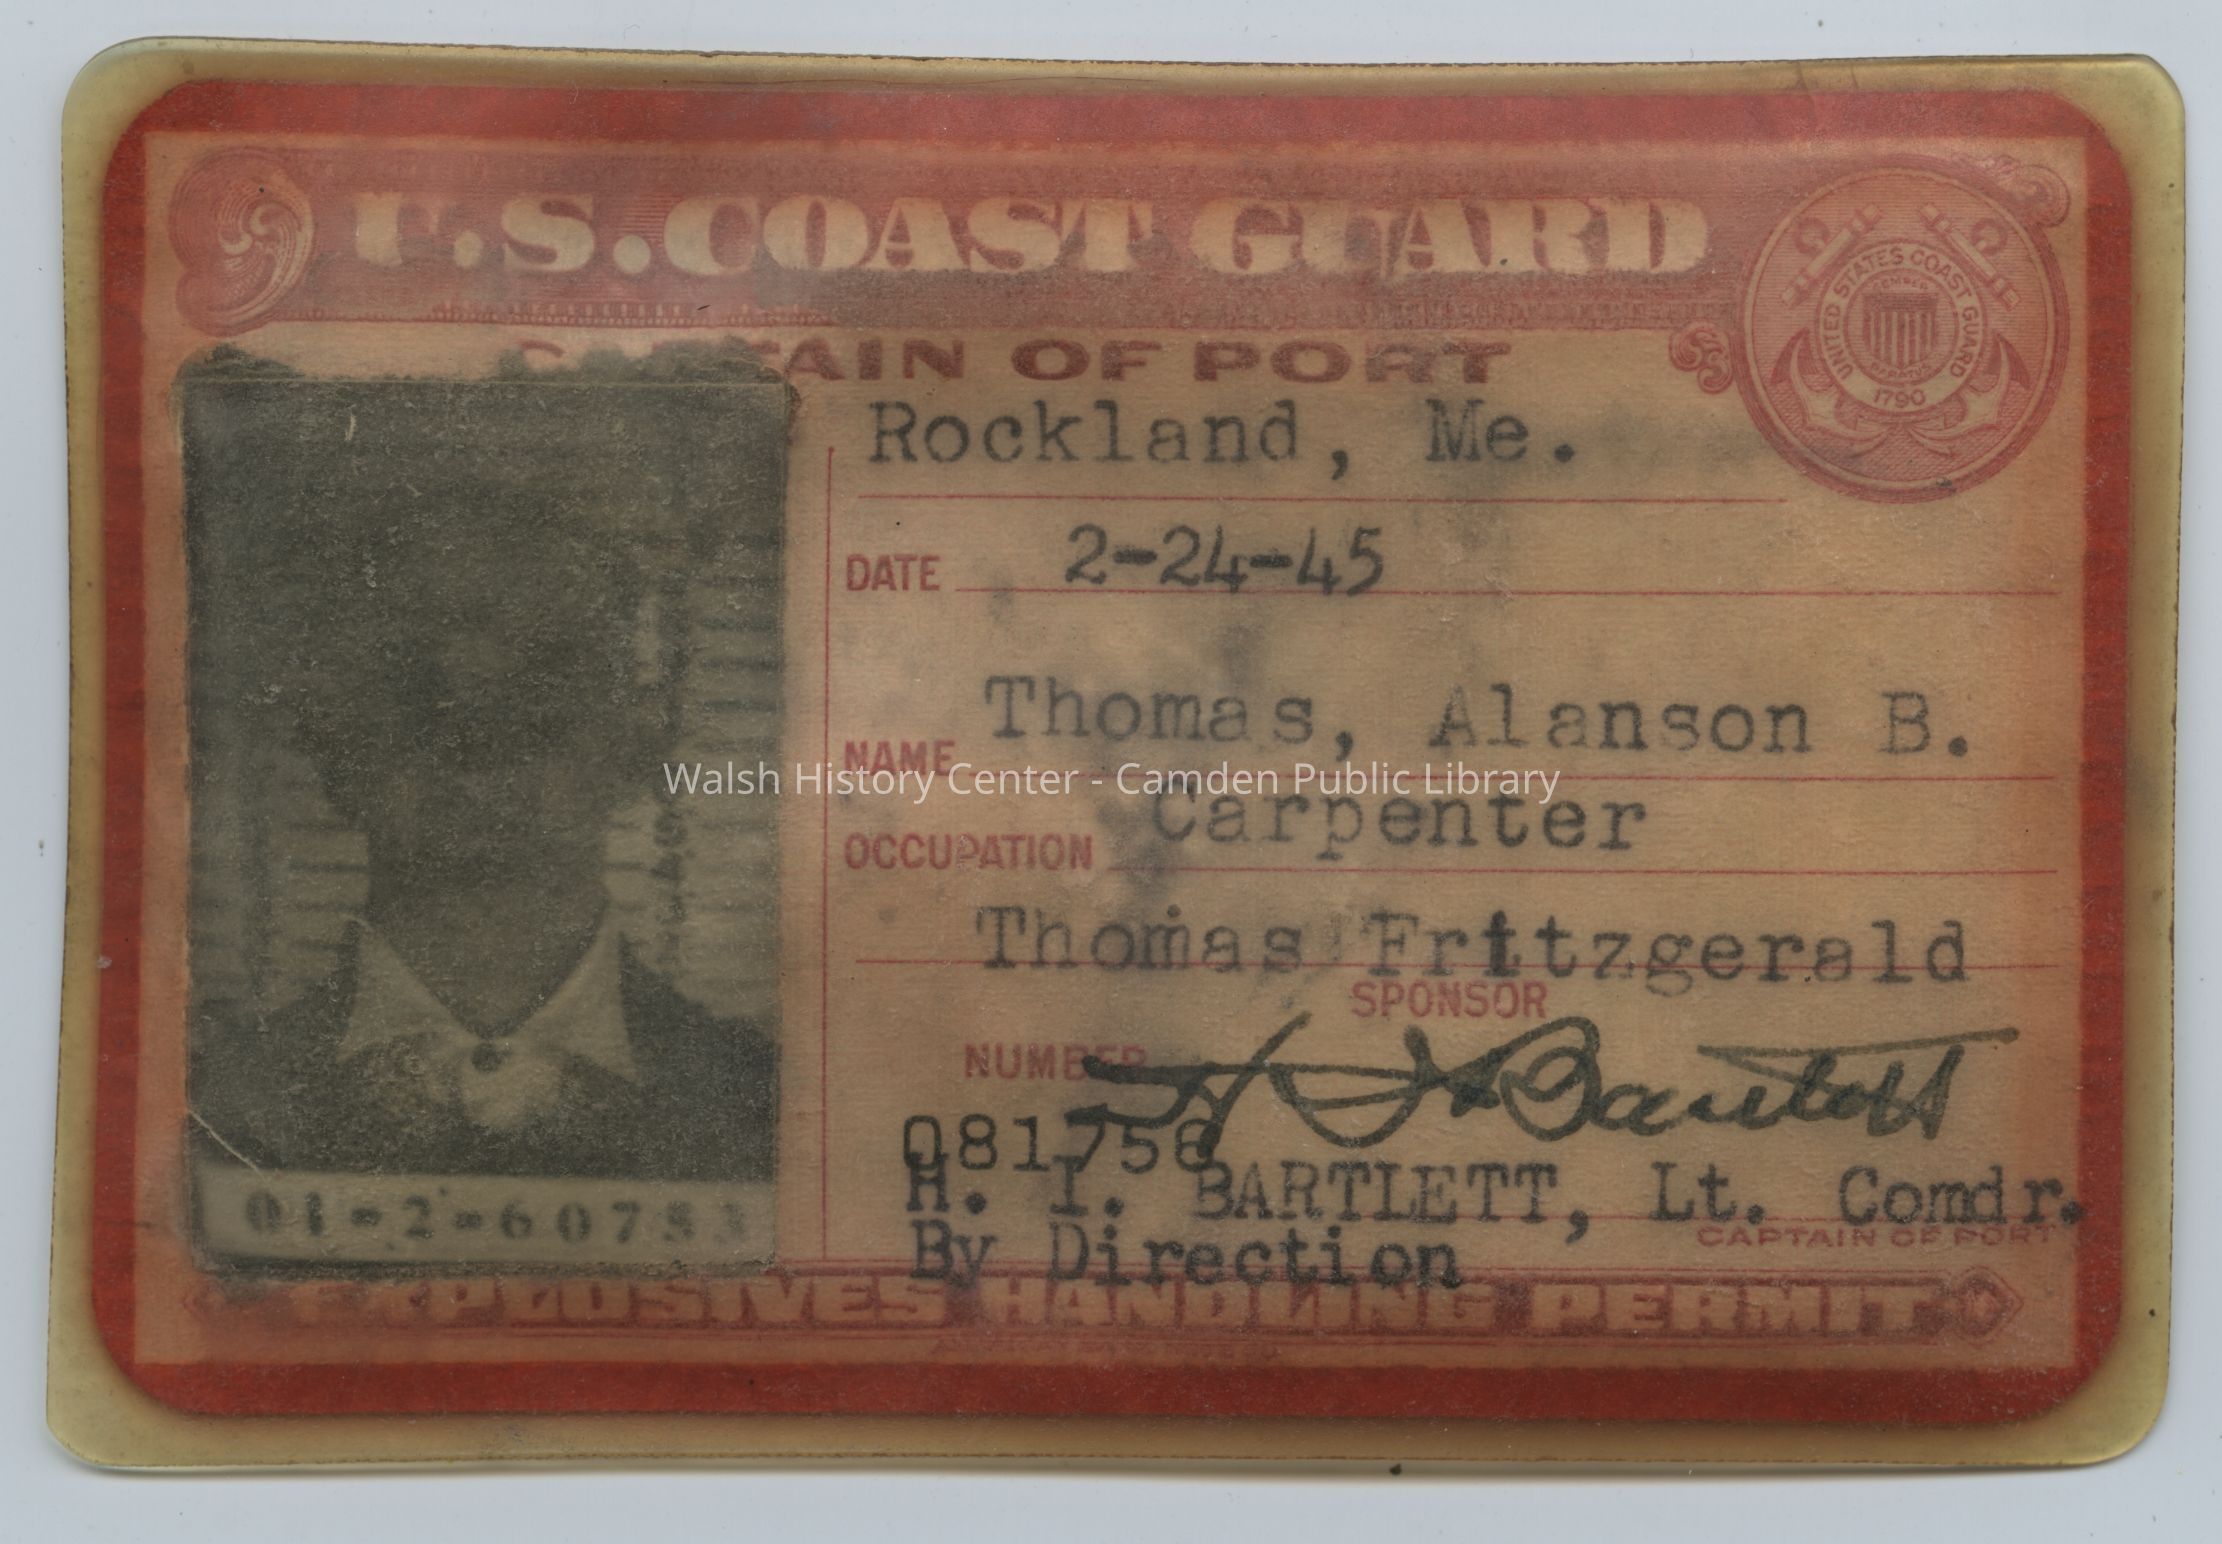 U.S. COAST GUARD
UNITED STATES COAST GUARD
1790
CAPTAIN OF PORT
Rockland, Me.
DATE 2-24-45
NAME Thomas, Alanson B.
Walsh History Center - Camden Public Library
OCCUPATION Carpenter
Thomas Fritzgerald
SPONSOR
NUMBER H I Bartlett
081756
H. I. BARTLETT, Lt. Comdr.
CAPTAIN OF PORT
By Direction
01-2-60783
EXPLOSIVES HANDLING PERMIT